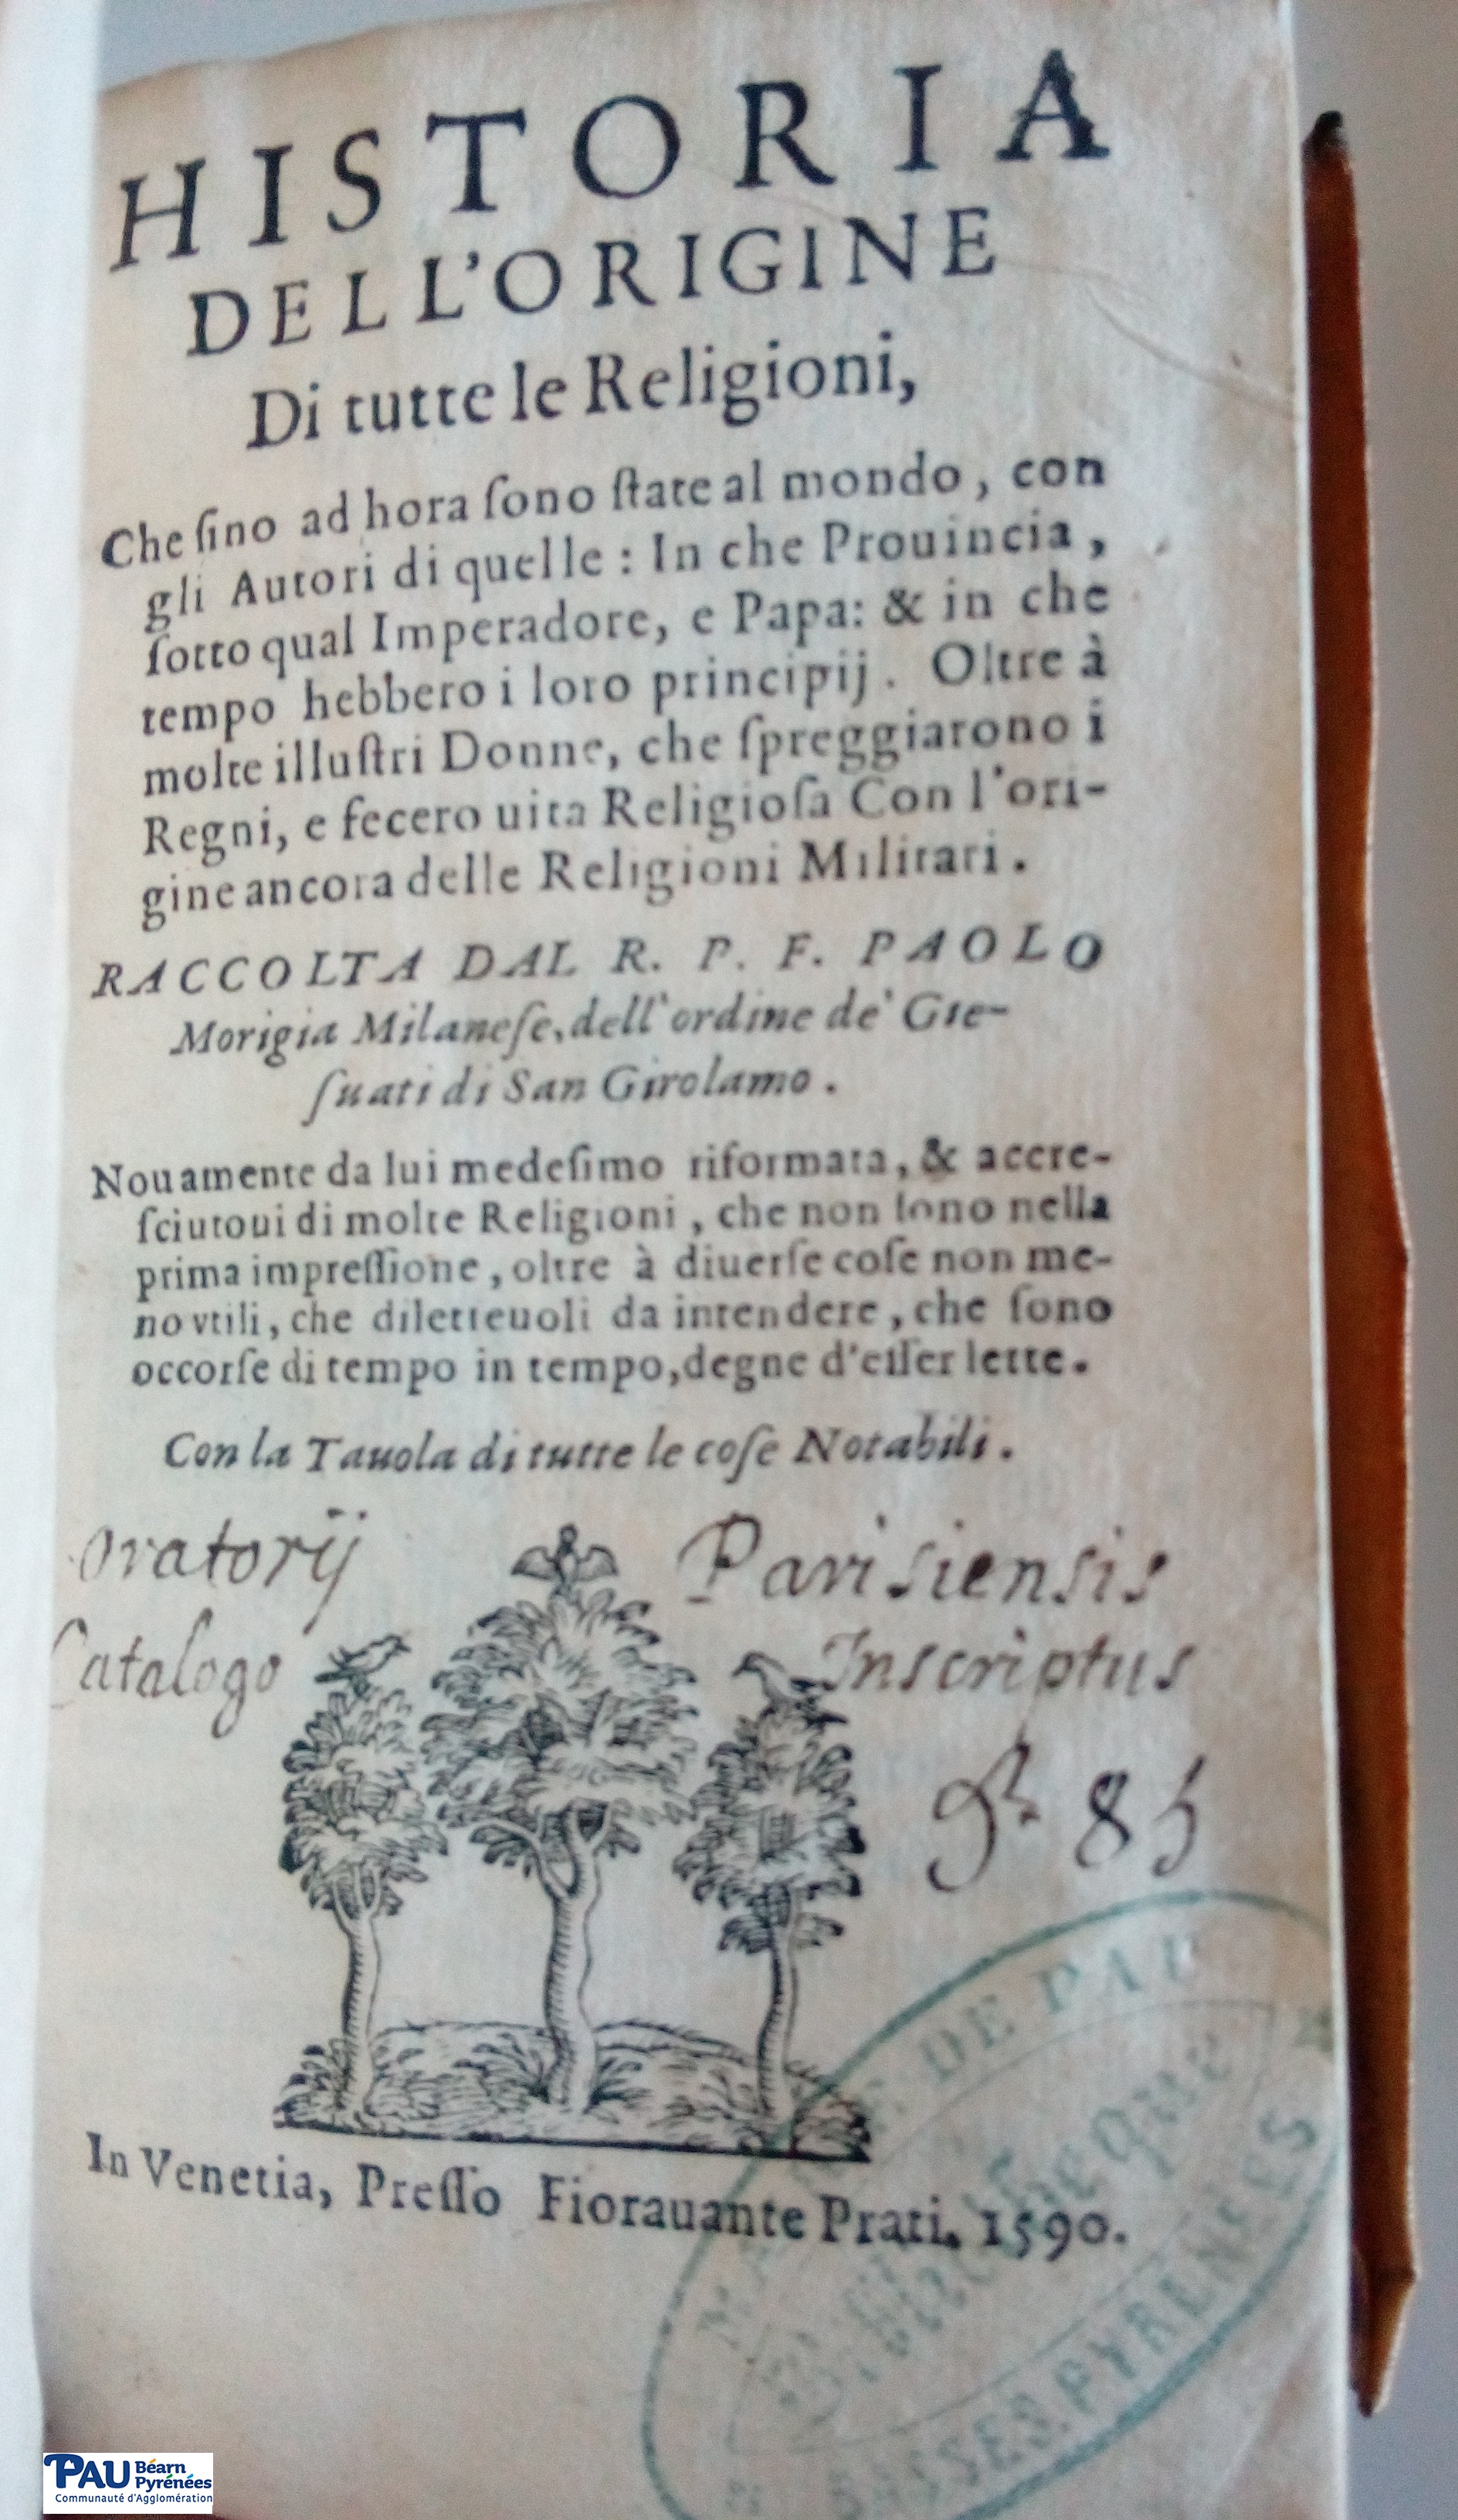 HISTORIA
DELL'ORIGINE
Di tutte le Religioni,
Che ſino ad hora ſono ſtate al mondo, con
gli Autori di quelle: In che Prouincia,
ſotto qual Imperadore, e Papa: & in che
tempo hebbero i loro principij. Oltre à
molte illuſtri Donne, che ſpreggiarono i
Regni, e fecero uita Religioſa Con l'ori-
gine ancora delle Religioni Militari.
RACCOLTA DAL R. P. F. PAOLO
Morigia Milaneſe, dell'ordine de' Gie-
ſuati di San Girolamo.
Nouamente da lui medeſimo riformata, & accre-
ſciutoui di molte Religioni, che non ſono nella
prima impreſſione, oltre à diuerſe coſe non me-
no vtili, che diletteuoli da intendere, che ſono
occorſe di tempo in tempo, degne d'eſſer lette.
Con la Tauola di tutte le coſe Notabili.
Oratorij Parisiensis
Catalogo Inscriptus
85
In Venetia, Preſſo Fiorauante Prati. 1590.
DE PAU
Bibliothèque
BASSES PYRÉNÉES
PAU Béarn
Pyrénées
Communauté d'Agglomération